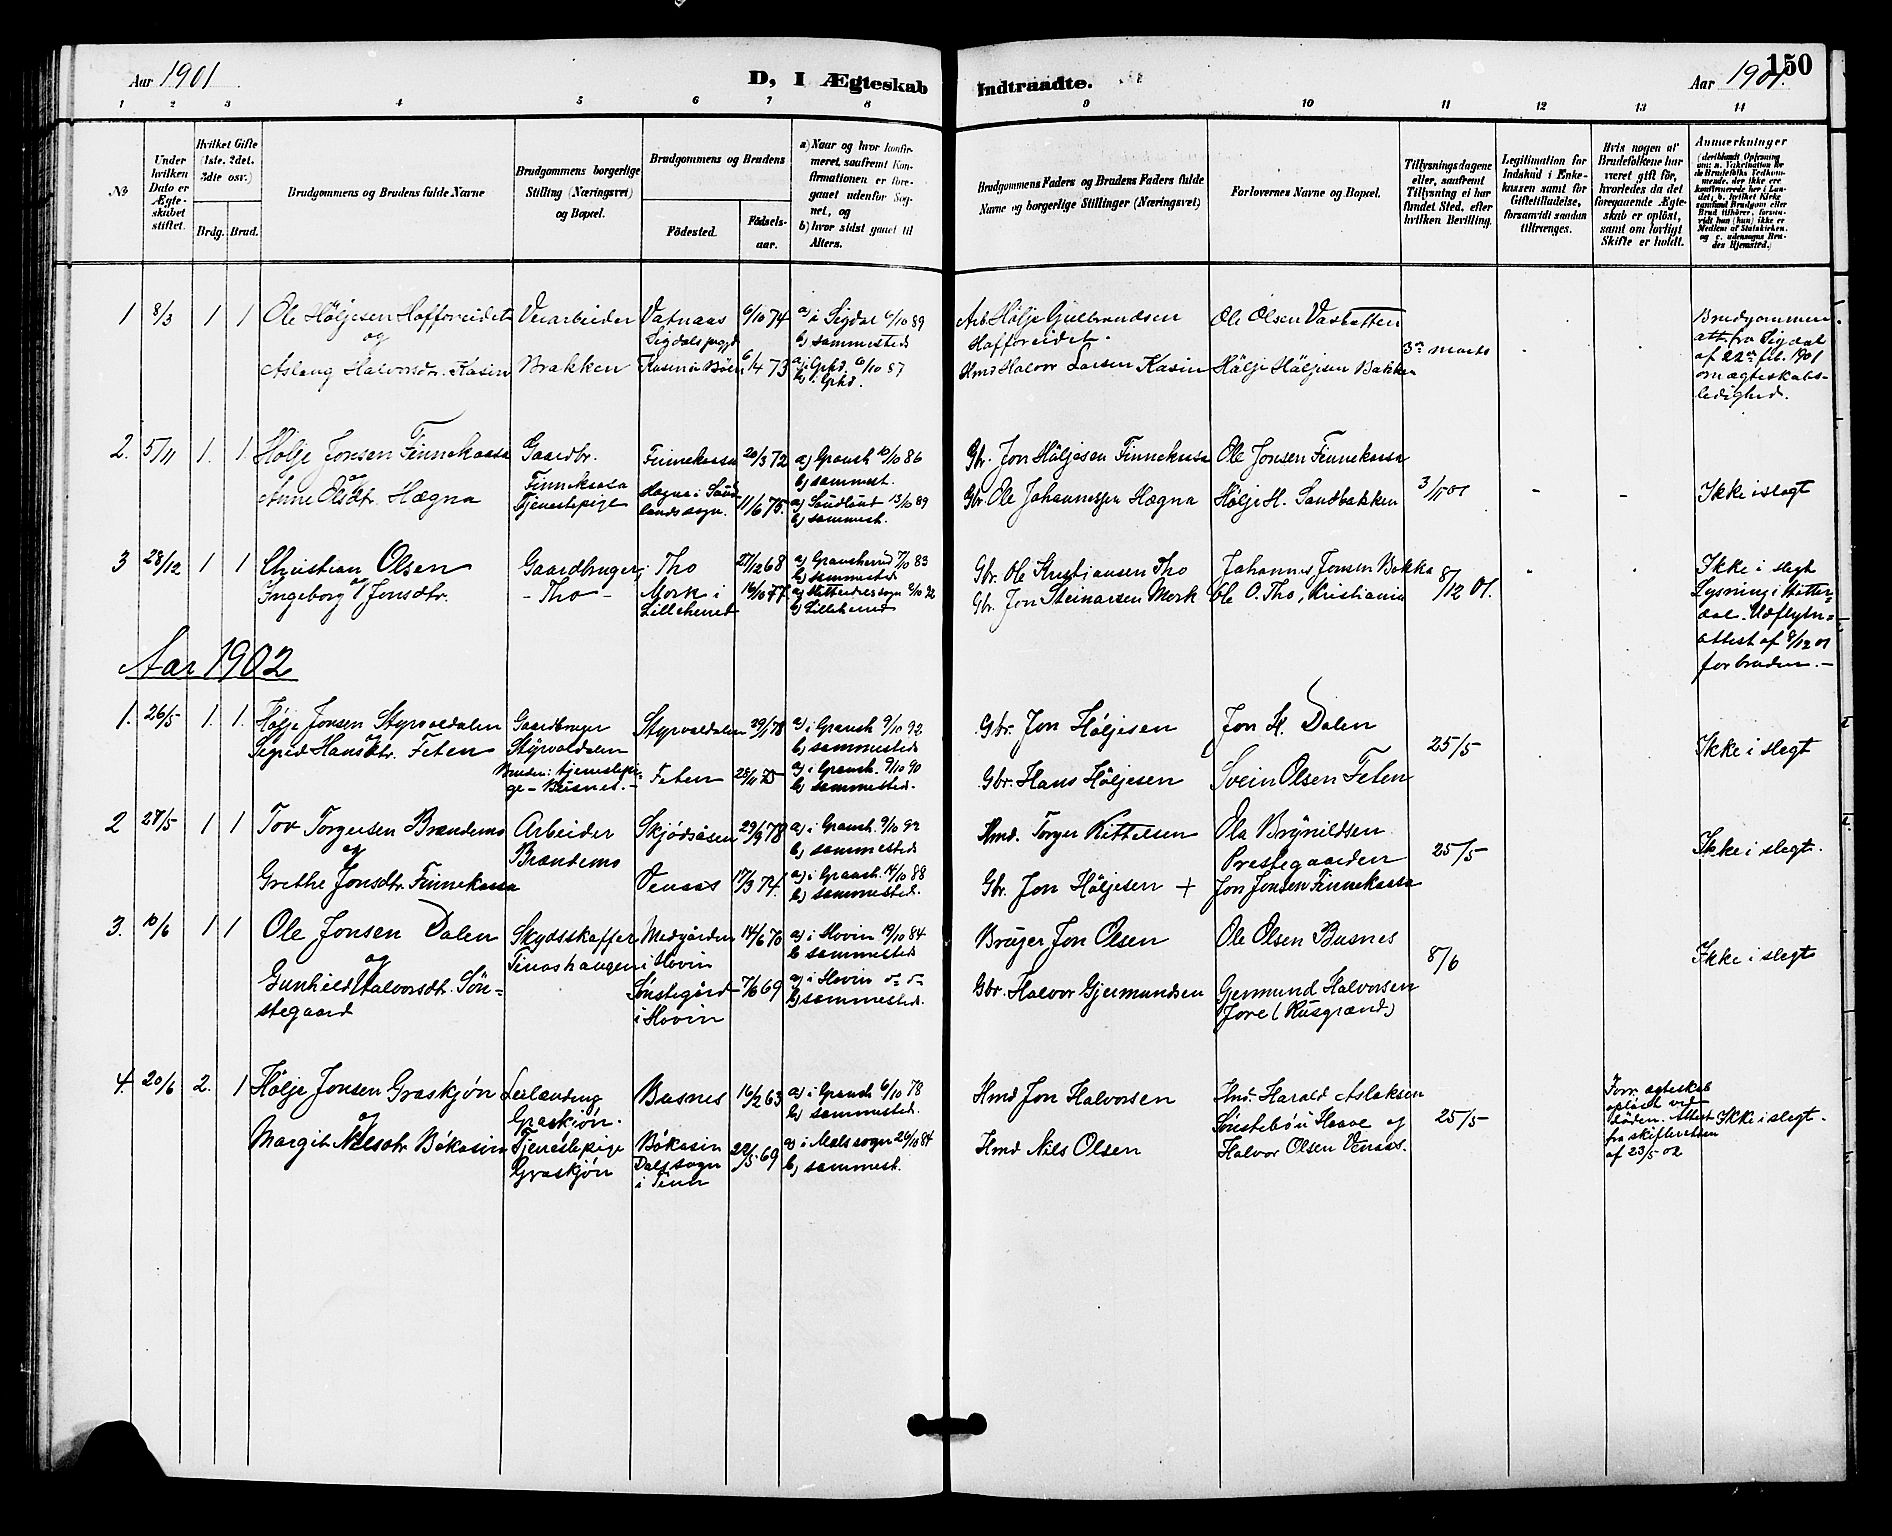 150
Aar 1901
D, I Ægteskab Indtraadte.
Aar 1901.
1 2 3 4 5 6 7 8 9 10 11 12 13 14
No
Under hvilken Dato er Ægteskabet stiftet.
Hvilket Gifte (1ste. 2det. 3die osv.)
Brdg. Brud.
Brudgommens og Brudens fulde Navne
Brudgommens borgerlige Stilling (Næringsvei) og Bopæl.
Brudgommens og Brudens
Fødested. Fødselsaar.
a) Naar og hvor konfirmeret, saafremt Konfirmationen er foregaaet udenfor Sognet, og
b) hvor sidst gaaet til Alters.
Brudgommens Faders og Brudens Faders fulde Navne og borgerlige Stillinger (Næringsvei)
Forlovernes Navne og Bopæl.
Tillysningsdagene eller, saafremt Tillysning ei har fundet Sted, efter hvilken Bevilling.
Legitimation for Indskud i Enkekassen samt for Giftetilladelse, forsaavidt saadan tiltrænges.
Hvis nogen af Brudefolkene har været gift før, hvorledes da det foregaaende Ægteskab er opløst, samt om lovligt Skifte er holdt.
Anmærkninger
1 8/3 1 1 Ole Höljesen Hafforeidet Veiarbeider Vatnaas 6/10 74 a) i Sigdal 6/10 89 Arb. Hölje Gulbrandsen Ole Olsen Vastatten Brudgommen
og Sigdals prgjd b) sammesteds Hafforeidet. 3die marts att. fra Sigdal
Aslaug Halvorsdr. Kasin Brakken Kasin i Böen 6/4 73 a) i Grhd. 6/10 87 Hmd Halvor Larsen Kasin Hölje Höljesen Bakken af 22de feb. 1901
b) i Grhd. om ægteskabsledighed.
2. 5/11 1. 1. Hölje Jonsen Finnekaasa Gaardbr. Finnekaasa 20/3 72 a) Gransh 10/10 86 Gbr. Jon Höljesen Finnekaasa Ole Jonsen Finnekaasa
og Finnekaasa b) sammest.
Anne Olsdtr. Hægna Tjenestepige Hægna i Saudlands sogn. 11/6 75. a) Saudland 13/10 89 Gbr. Ole Johannessen Hægna Hölje H. Sandbakken 3/11 01 - - Ikke i slegt
b) sammest.
3 28/12 1 1 Christian Olsen Gaardbruger, Tho 27/12 68 a) Gransherad 7/10 83 Gbr. Ole Kristiansen Tho Johannes Jonsen Bakka Ikke i slegt
og b) sammesteds 8/12 01. Lysning i Hitterdal. Udflytn=
Ingeborg Jonsdtr. - Tho - Mork i Lilleherred 16/10 77 a) Hitterdals sogn 2/10 92 Gbr. Jon Steinarsen Mork Ole O. Tho, Kristiania attest af 8/12 01
b) Lilleherred for bruden. -
Aar 1902
1. 26/5 1. 1. Hölje Jonsen Styrvoldalen Gaardbruger Styrvoldalen 29/1 78 a) i Gransh 9/10 92 Gbr. Jon Höljesen Jon H. Dalen
og Styrvoldalen b) sammesteds 25/5 Ikke i slegt
Sigrid Hansdtr. Feten Bruden: tjenestepige - Busnes. - Feten a) i Gransh. 9/10 90 Gbr. Hans Höljesen Svein Olsen Feten
b) sammesteds.
2 27/5 1 1 Tov Torgersen Brændemo Arbeider Skjödsåsen 29/9 78 a) i Gransh. 9/10 92 Hmd. Torger Kittelsen Ola Brynildsen
og Brændemo b) sammesteds Prestegaarden 25/5 Ikke i slegt.
Grethe Jonsdtr. Finnekaasa Venaas 17/3 74. a) i Gransh. 14/10 88 Gbr. Jon Höljesen + Jon Jonsen Finnekaasa
b) sammested.
3. 10/6 1 1 Ole Jonsen Dalen Skydsskaffer Medgården 14/6 70 a) i Hovin 19/10 84 Bruger Jon Olsen Ole Olsen Busnes
og Tinoshaugen i Hovin b sammesteds 8/6 Ikke i slegt
Gunhild Halvorsdtr. Sönstegaard Sönstegård i Hovin 7/6 69 a) i Hovin b) sammesteds. Gbr. Halvor Gjermundsen Gjermund Halvorsen
Jore (Rusgrænd)
4. 20/6 2. 1 Hölje Jonsen Graskjøn Leilænding Busnes 16/2 63 a) i Gransh 6/10 78 Hmd Jon Halvorsen Hmd. Harald Aslaksen Forr. ægteskab
og Graskjön. b) sammested. Sönstebö i Hovve og 25/5 oplöst ved döden. Attest Ikke i slegt.
Margit Nilsdtr Bökasin Tjenestepige Bökasin 22/5 69 a) i Mæls sogn 26/10 84 Hmd Nils Olsen Halvor Olsen Venaas. fra skifteretten
Graskjön Dals sogn b) sammest. af 23/5 02
i Tinn